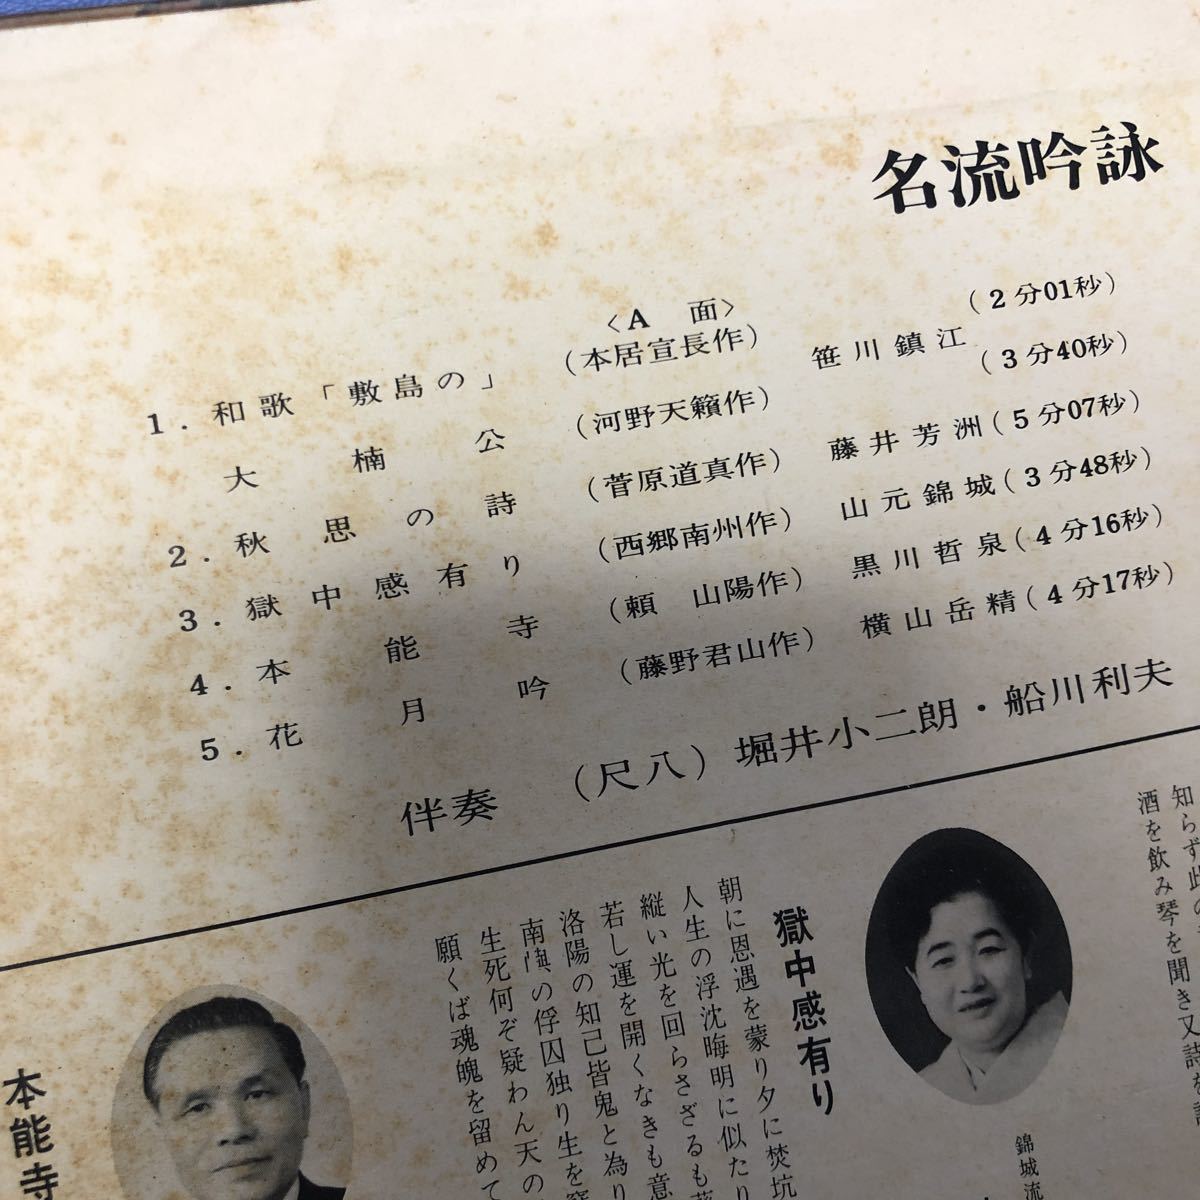 名流吟詠
〈A 面〉
1. 和歌「敷島の」 (本居宣長作) 笹川鎮江 (2分01秒)
大楠公 (河野天籟作) (3分40秒)
2. 秋思の詩 (菅原道真作) 藤井芳洲 (5分07秒)
3. 獄中感有り (西郷南州作) 山元錦城 (3分48秒)
4. 本能寺 (頼 山陽作) 黒川哲泉 (4分16秒)
5. 花月吟 (藤野君山作) 横山岳精 (4分17秒)
伴奏 (尺八) 堀井小二朗・船川利夫
知らず此の
酒を飲み琴を聞き又詩を
錦城流
獄中感有り
朝に恩遇を蒙り夕に焚坑
人生の浮沈晦明に似たり
縦い光を回らさざるも葵
若し運を開くなきも意
洛陽の知己皆鬼と為り
南嶼の俘囚独り生を窃
生死何ぞ疑わん天の
願くば魂魄を留めて
本能寺